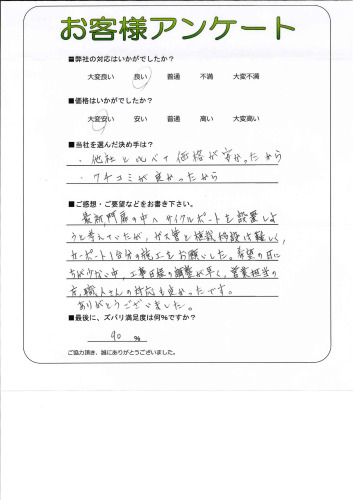 お客様アンケート
■弊社の対応はいかがでしたか?
大変良い 良い 普通 不満 大変不満
■価格はいかがでしたか?
大変安い 安い 普通 高い 大変高い
■当社を選んだ決め手は?
・他社と比べて価格が安かったから
・クチコミが良かったから
■ご感想・ご要望などをお書き下さい。
最初、門扉の中へサイクルポートを設置しよ
うと考えていたが、ガス管と 設は難しく、
カーポート1台分の施工をお願いした。希望の日に
ちが少ない中、工事日程の調整が早く、営業担当の
方、職人さんの対応も良かったです。
ありがとうございました。
■最後に、ズバリ満足度は何%ですか?
90 %
ご協力頂き、誠にありがとうございました。